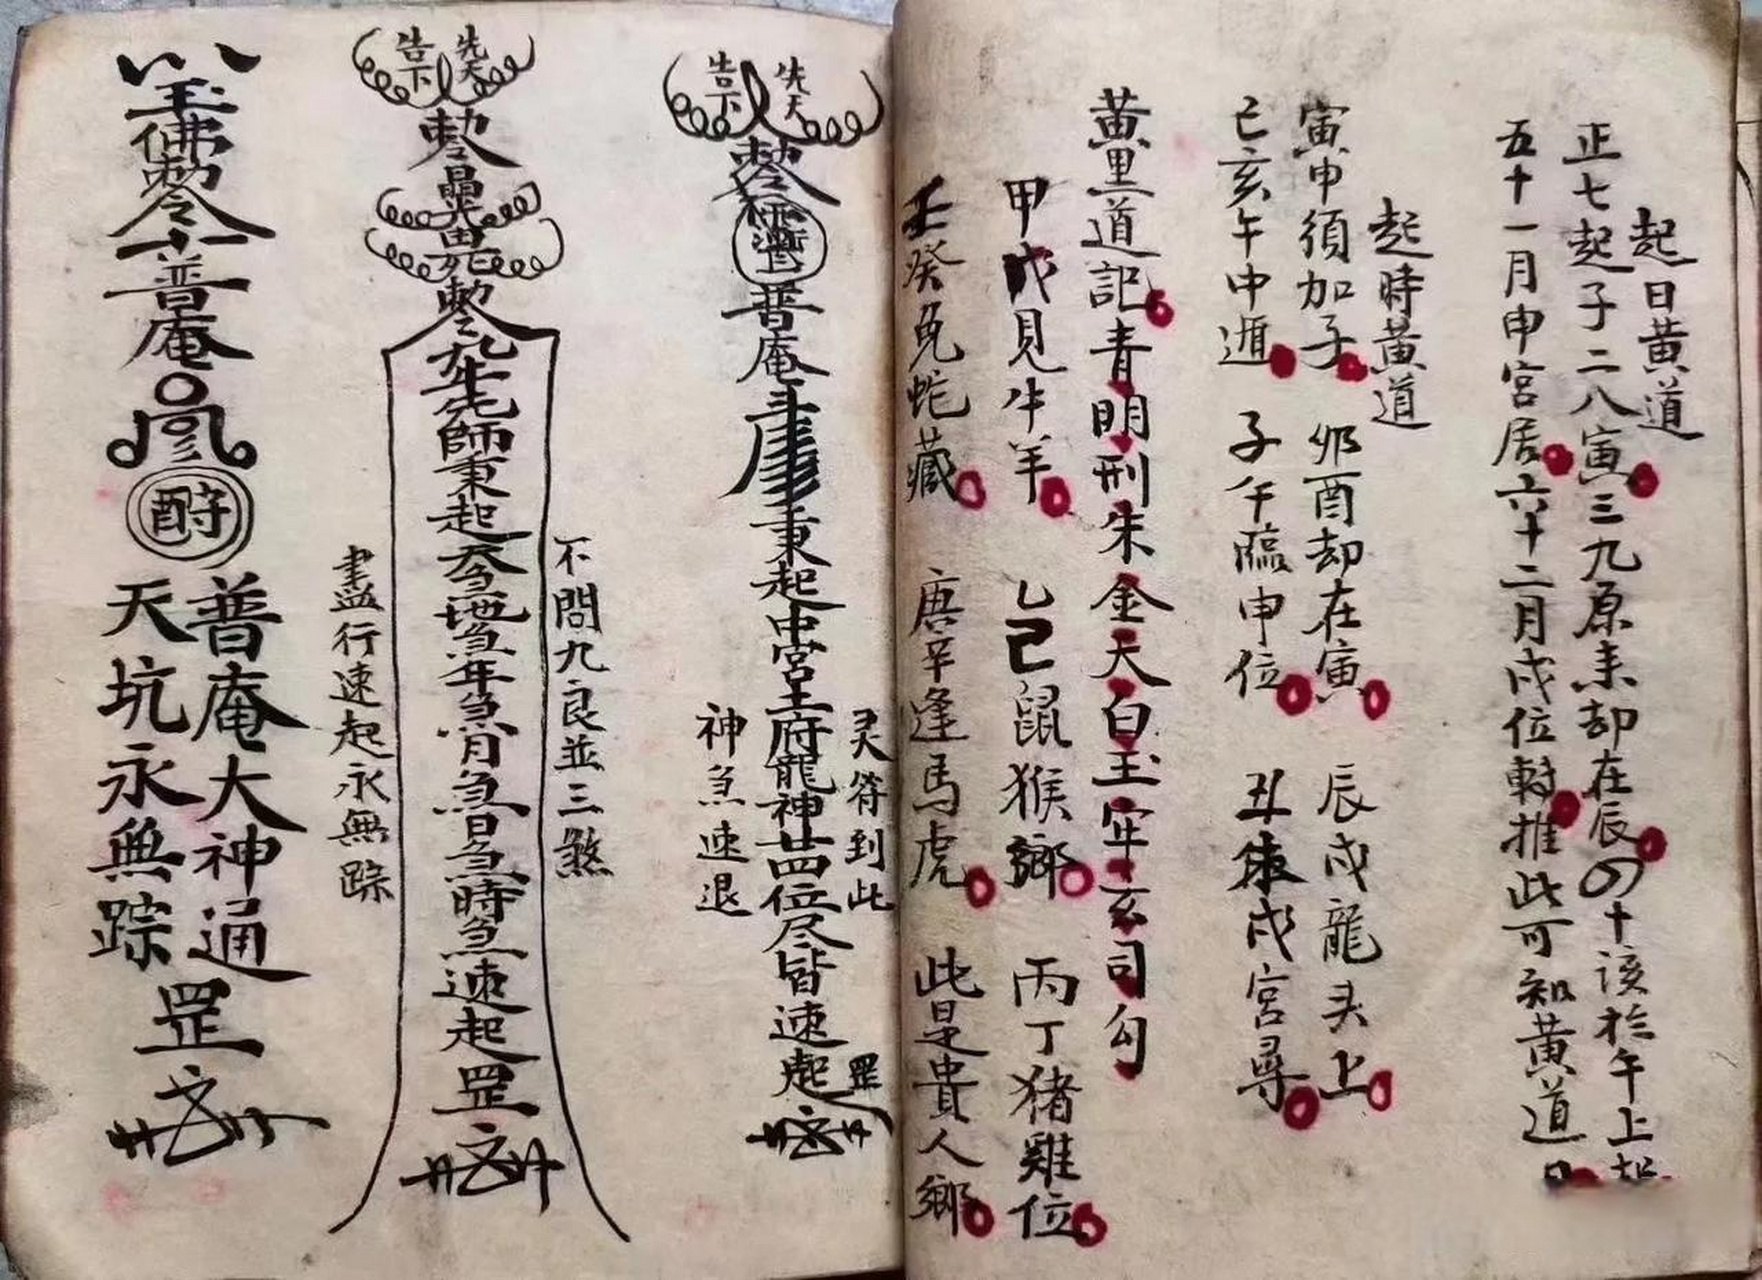 起日黃道
正七起子二八寅三九原来却在辰四十該於午上
五十一月申宮居六十二月戌位轉推此可知黃道
起時黃道
寅申須加子 卯酉却在寅 辰戌龍头上
已亥午中遁 子午臨申位 丑未戌宮尋
黃黑道記青明刑朱金天白玉牢玄司勾
甲戊見牛羊 乙己鼠猴鄉 丙丁猪雞位
壬癸兔蛇藏 庚辛逢馬虎 此是貴人鄉
先天
告下
敕令
普庵
秉起中宮土府龍神廿四位尽皆速起罡
灵符到此
神煞速退
先天
告下
敕令
敕令九牛先師秉起天煞地煞年煞月煞日煞時煞速起罡
不問九良並三煞
盡行速起永無踪
玉佛敕令普庵
普庵大神通
天坑永無踪
罡